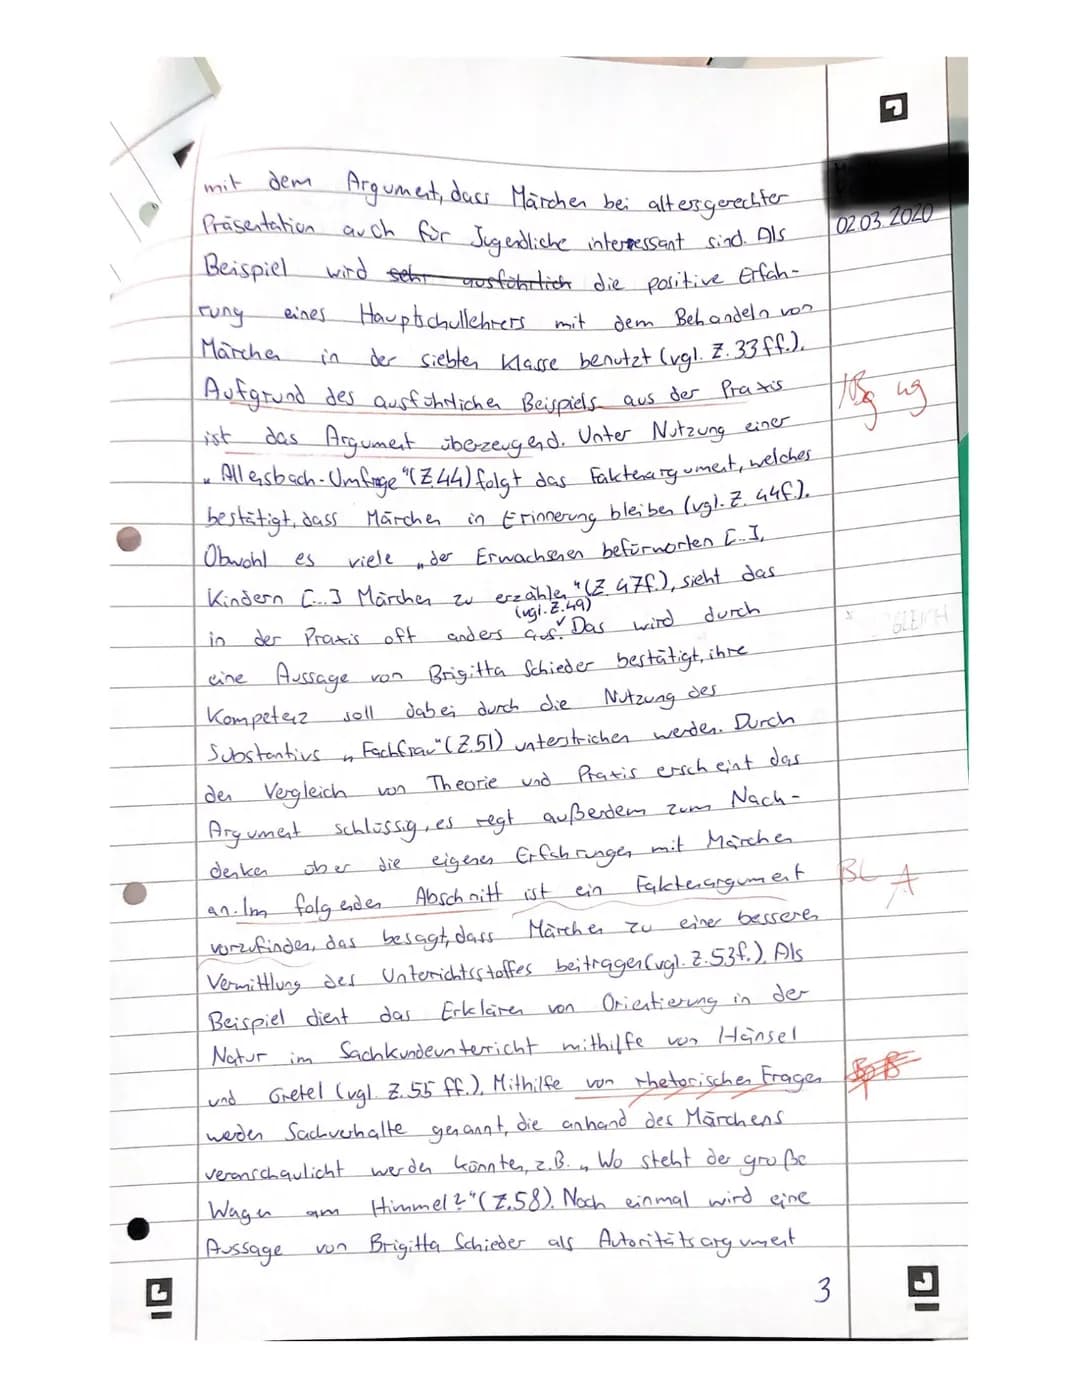 mit dem Argument, dass Märchen bei altersgerechter
Präsentation auch für Jugendliche interessant sind. Als
02.03.2020
Beispiel wird sehr ausführlich die positive Erfah-
rung eines Hauptschullehrers mit dem Behandeln von
Märchen in der siebten Klasse benutzt (vgl. Z. 33ff.).
Aufgrund des ausführlichen Beispiels aus der Praxis
ist das Argument überzeugend. Unter Nutzung einer
„Allensbach-Umfrage“ (Z.44) folgt das Faktenargument, welches
bestätigt, dass Märchen in Erinnerung bleiben (vgl. Z. 44f.).
Obwohl es viele „der Erwachsenen befürworten [...],
Kindern [...] Märchen zu erzählen“ (Z. 47f.), sieht das
in der Praxis oft anders aus (vgl. Z.49). Das wird durch
eine Aussage von Brigitta Schieder bestätigt, ihre
Kompetenz soll dabei durch die Nutzung des
Substantivs „Fachfrau“ (Z.51) unterstrichen werden. Durch
den Vergleich von Theorie und Praxis erscheint das
Argument schlüssig, es regt außerdem zum Nach-
denken über die eigenen Erfahrungen mit Märchen
an. Im folgenden Abschnitt ist ein Faktenargument
A
vorzufinden, das besagt, dass Märchen zu einer besseren
Vermittlung des Unterrichtsstoffes beitragen (vgl. Z.53f.). Als
Beispiel dient das Erklären von Orientierung in der
Natur im Sachkundeunterricht mithilfe von Hänsel
und Gretel (vgl. Z.55 ff.). Mithilfe von rhetorischen Fragen
werden Sachverhalte genannt, die anhand des Märchens
veranschaulicht werden könnten, z.B. „Wo steht der große
Wagen am Himmel?“ (Z.58). Noch einmal wird eine
Aussage von Brigitta Schieder als Autoritätsargument
3